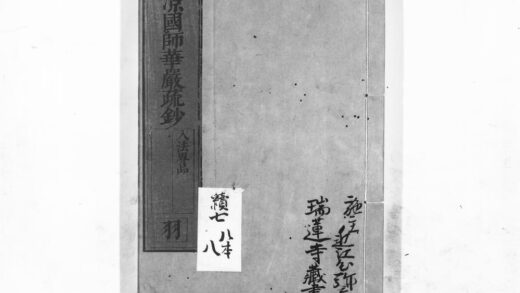 施主近江公弥
瑞蓮寺藏書
續七
八本
八
涼國師華嚴疏鈔
入法界品
羽